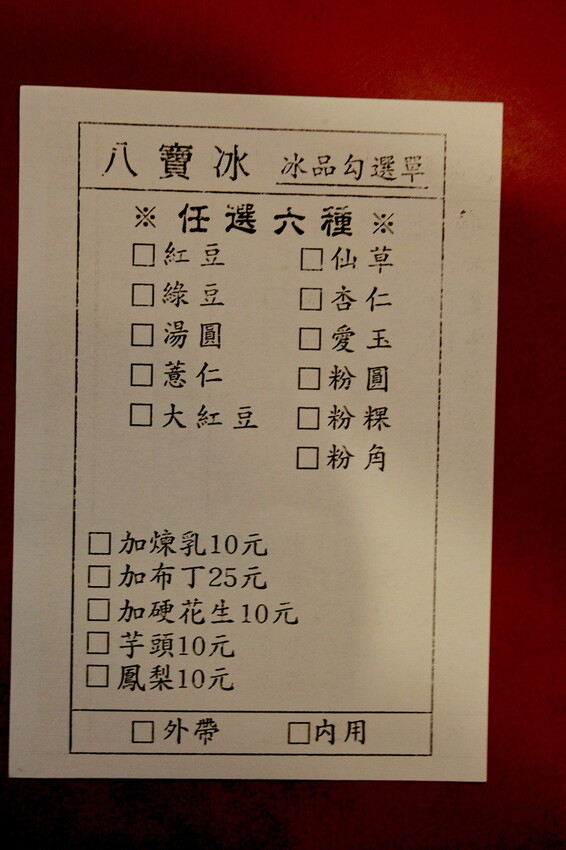 八寶冰 冰品勾選單
※任選六種※
□紅豆 □仙草
□綠豆 □杏仁
□湯圓 □愛玉
□薏仁 □粉圓
□大紅豆 □粉粿
□粉角
□加煉乳10元
□加布丁25元
□加硬花生10元
□芋頭10元
□鳳梨10元
□外帶 □內用